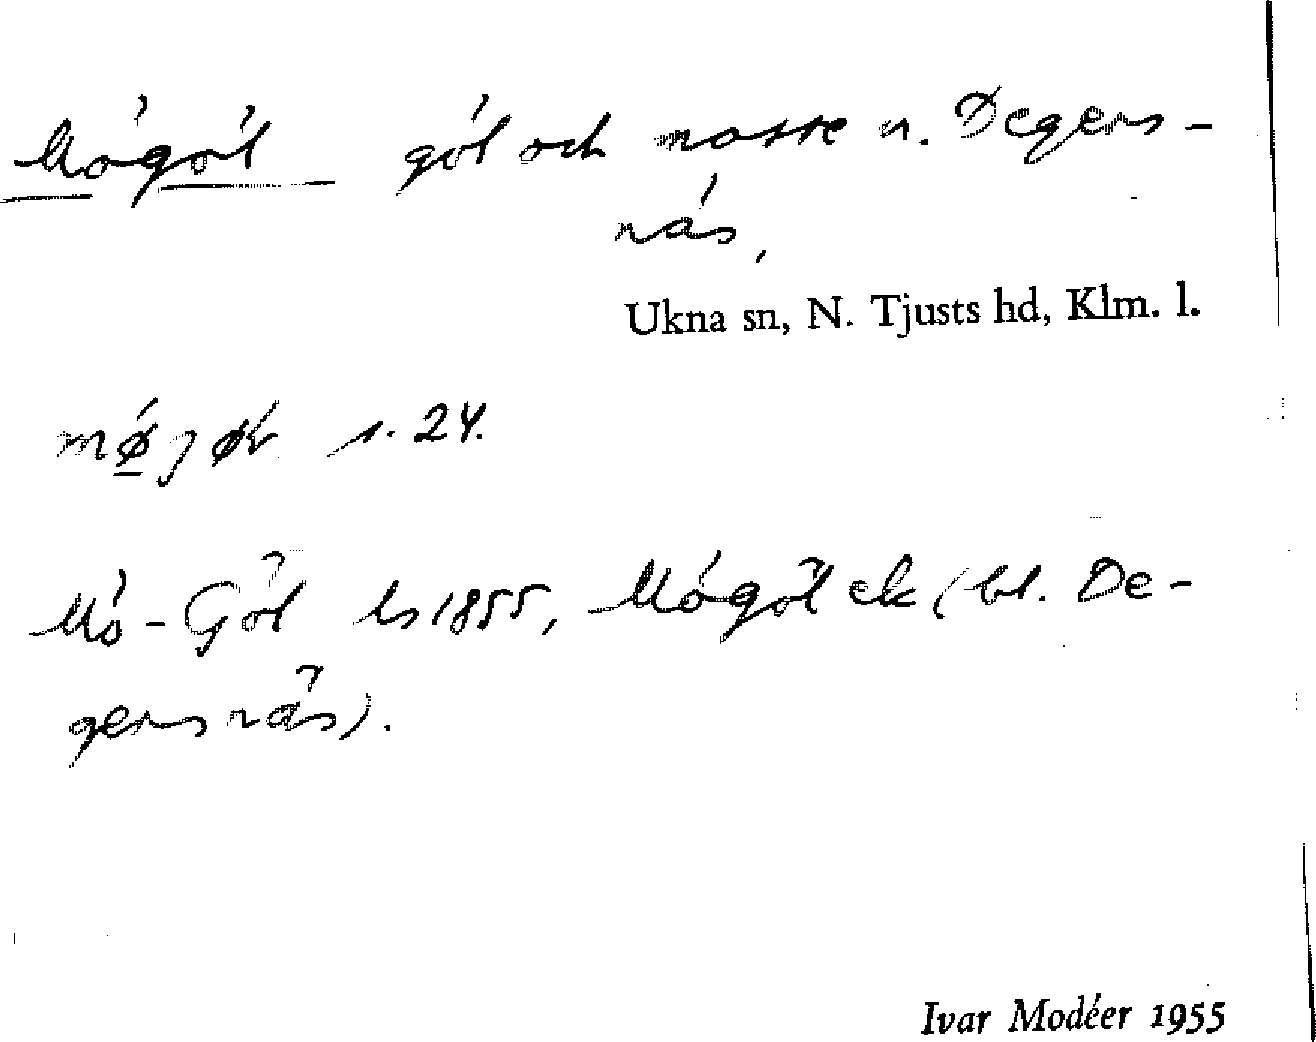 Mögöl göl och mosse n. Degers-
näs,
Ukna sn, N. Tjusts hd, Klm. l.
s. 24.
Mö-Göl ls 1855, Mögöl ek (bl. De-
gersnäs).
Ivar Modéer 1955